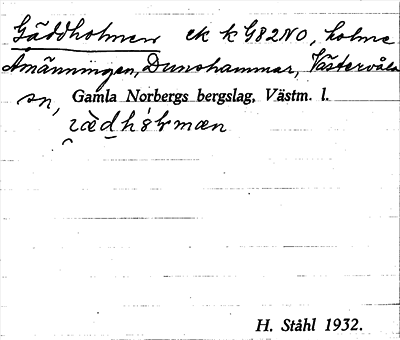 Gäddholmen ek k G82NO, holme
Åmänningen, Dunshammar, Västervåla
sn, Gamla Norbergs bergslag, Västm. l.
H. Ståhl 1932.